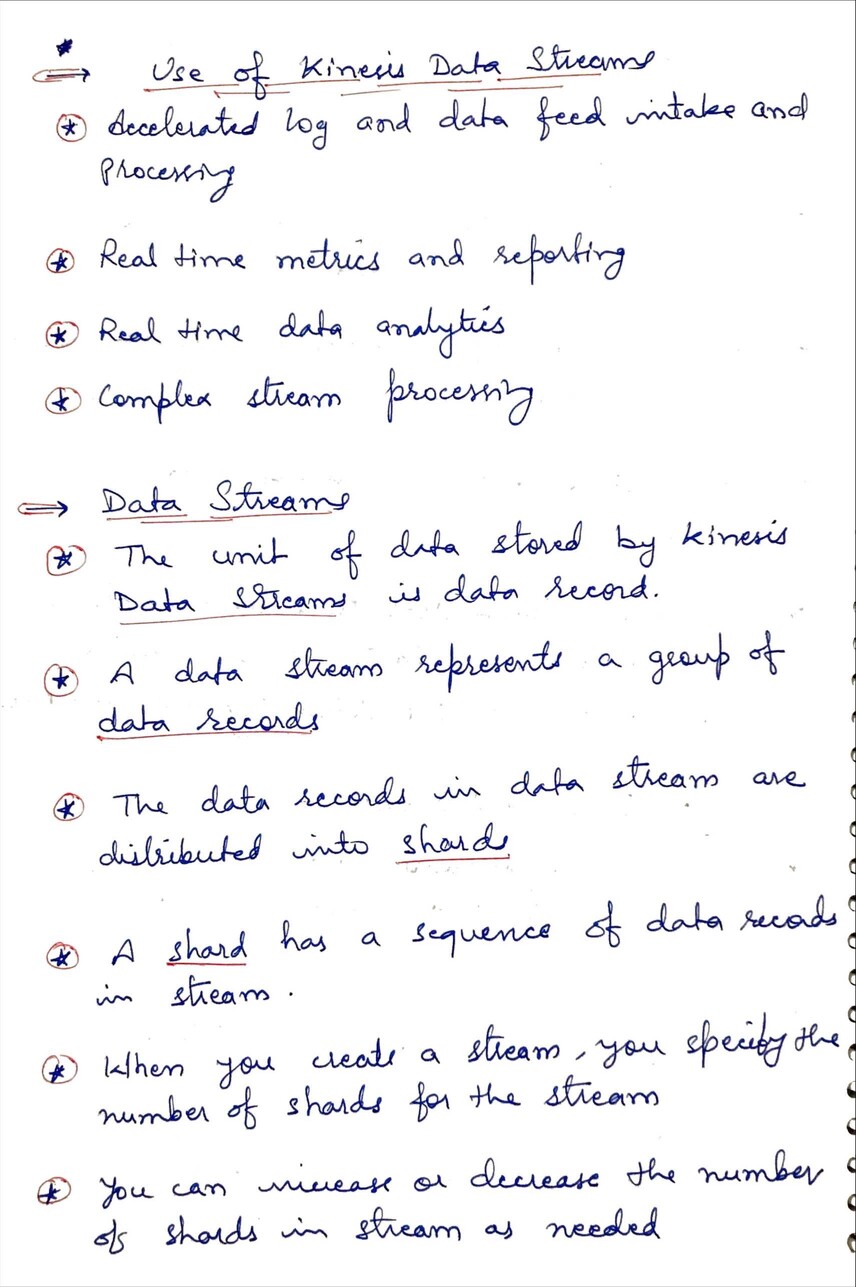 * 
⇒ Use of Kinesis Data Streams
* Accelerated log and data feed intake and
processing
* Real time metrics and reporting
* Real time data analytics
* Complex stream processing
⇒ Data Streams
* The unit of data stored by Kinesis
Data Streams is data record.
* A data stream represents a group of
data records
* The data records in data stream are
distributed into shards
* A shard has a sequence of data records
in stream.
* When you create a stream, you specify the
number of shards for the stream
* You can increase or decrease the number
of shards in stream as needed